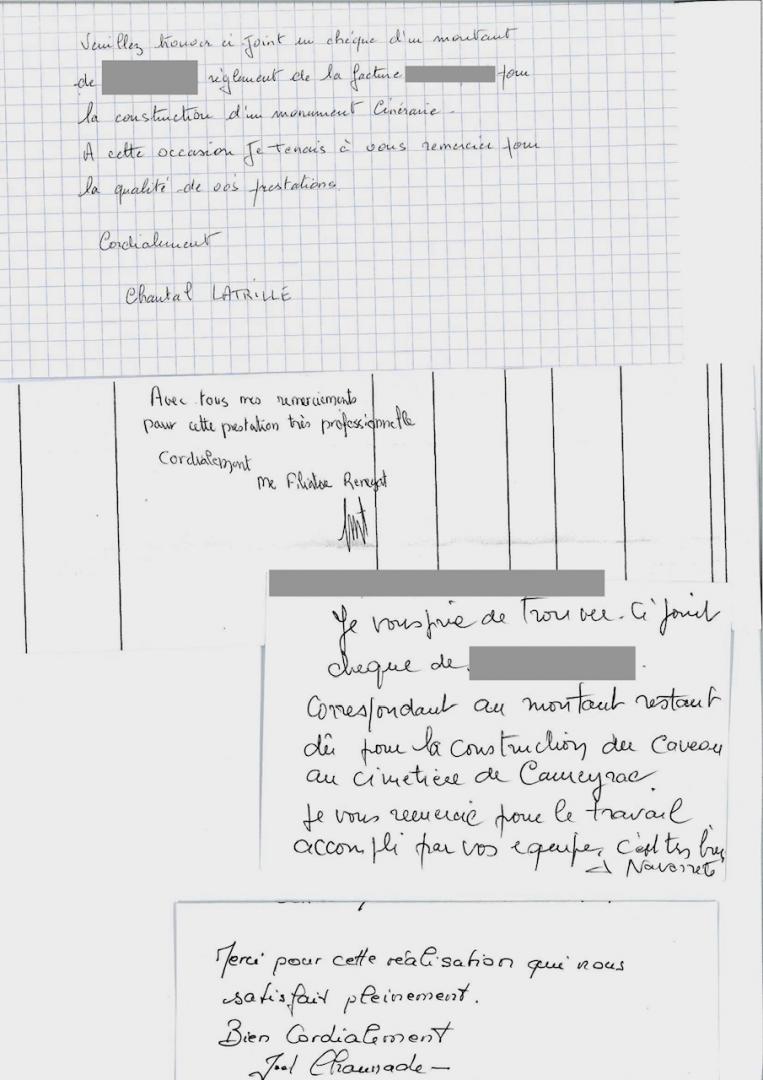 Veuillez trouver ci-joint un chèque d'un montant
de règlement de la facture pour
la construction d'un monument Cinéraire.
A cette occasion Je tenais à vous remercier pour
la qualité de vos prestations.
Cordialement
Chantal LATRILLE
Avec tous mes remerciements
pour cette prestation très professionnelle
Cordialement
Me
Je vous prie de trouver. Ci joint
cheque de
Correspondant au montant restant
dû pour la construction du Caveau
au cimetière de Cameyrac.
Je vous remercie pour le travail
accompli par vos equipes, c'est très bien
Navarrete
Merci pour cette réalisation qui nous
satisfait pleinement.
Bien Cordialement